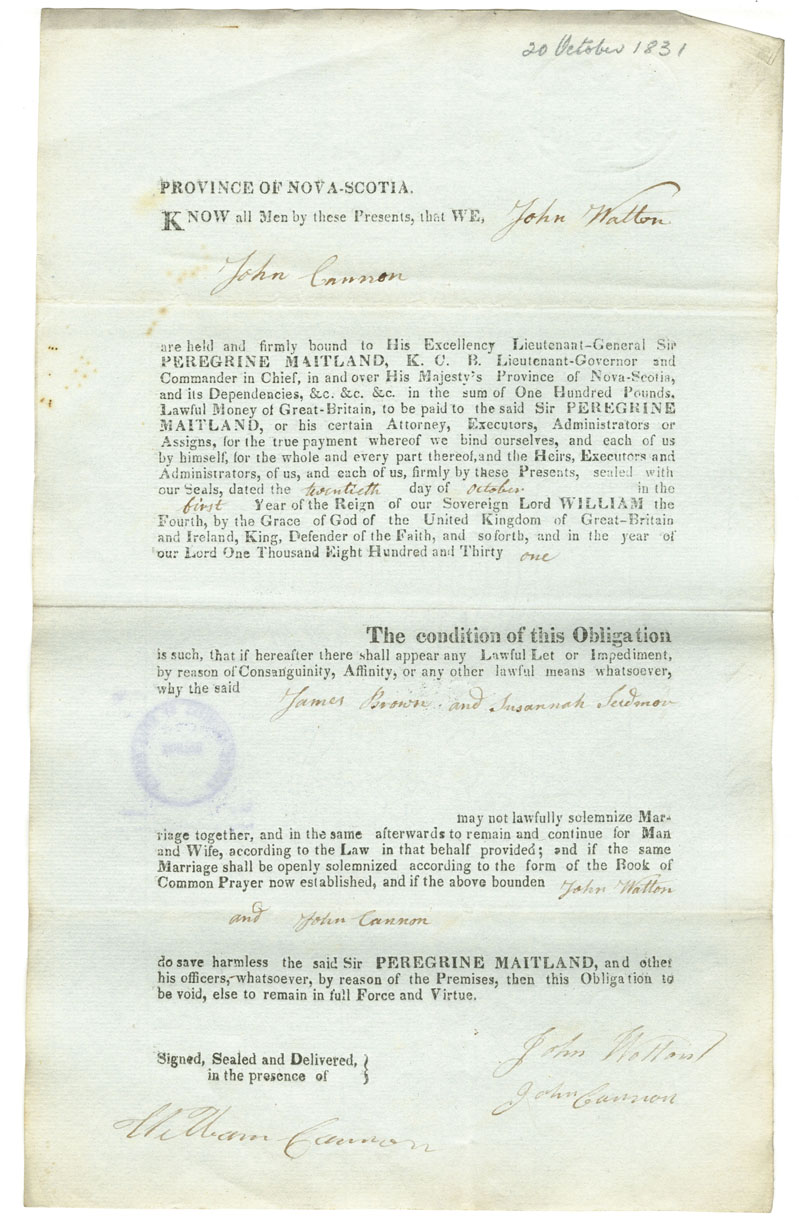 20 October 1831
PROVINCE OF NOVA-SCOTIA.
KNOW all Men by these Presents, that WE, John Watton
John Cannon
are held and firmly bound to His Excellency Lieutenant-General Sir
PEREGRINE MAITLAND, K. C. B. Lieutenant-Governor and
Commander in Chief, in and over His Majesty's Province of Nova-Scotia,
and its Dependencies, &c. &c. &c. in the sum of One Hundred Pounds,
Lawful Money of Great-Britain, to be paid to the said Sir PEREGRINE
MAITLAND, or his certain Attorney, Executors, Administrators or
Assigns, for the true payment whereof we bind ourselves, and each of us
by himself, for the whole and every part thereof, and the Heirs, Executors and
Administrators, of us, and each of us, firmly by these Presents, sealed with
our Seals, dated the twentieth day of October in the
first Year of the Reign of our Sovereign Lord WILLIAM the
Fourth, by the Grace of God of the United Kingdom of Great-Britain
and Ireland, King, Defender of the Faith, and so forth, and in the year of
our Lord One Thousand Eight Hundred and Thirty one
The condition of this Obligation
is such, that if hereafter there shall appear any Lawful Let or Impediment,
by reason of Consanguinity, Affinity, or any other lawful means whatsoever,
why the said
James Brown and Susannah
may not lawfully solemnize Mar-
riage together, and in the same afterwards to remain and continue for Man
and Wife, according to the Law in that behalf provided; and if the same
Marriage shall be openly solemnized according to the form of the Book of
Common Prayer now established, and if the above bounden John Watton
and John Cannon
do save harmless the said Sir PEREGRINE MAITLAND, and other
his officers, whatsoever, by reason of the Premises, then this Obligation to
be void, else to remain in full Force and Virtue.
John
Signed, Sealed and Delivered,
in the presence of
John Cannon
William Cannon